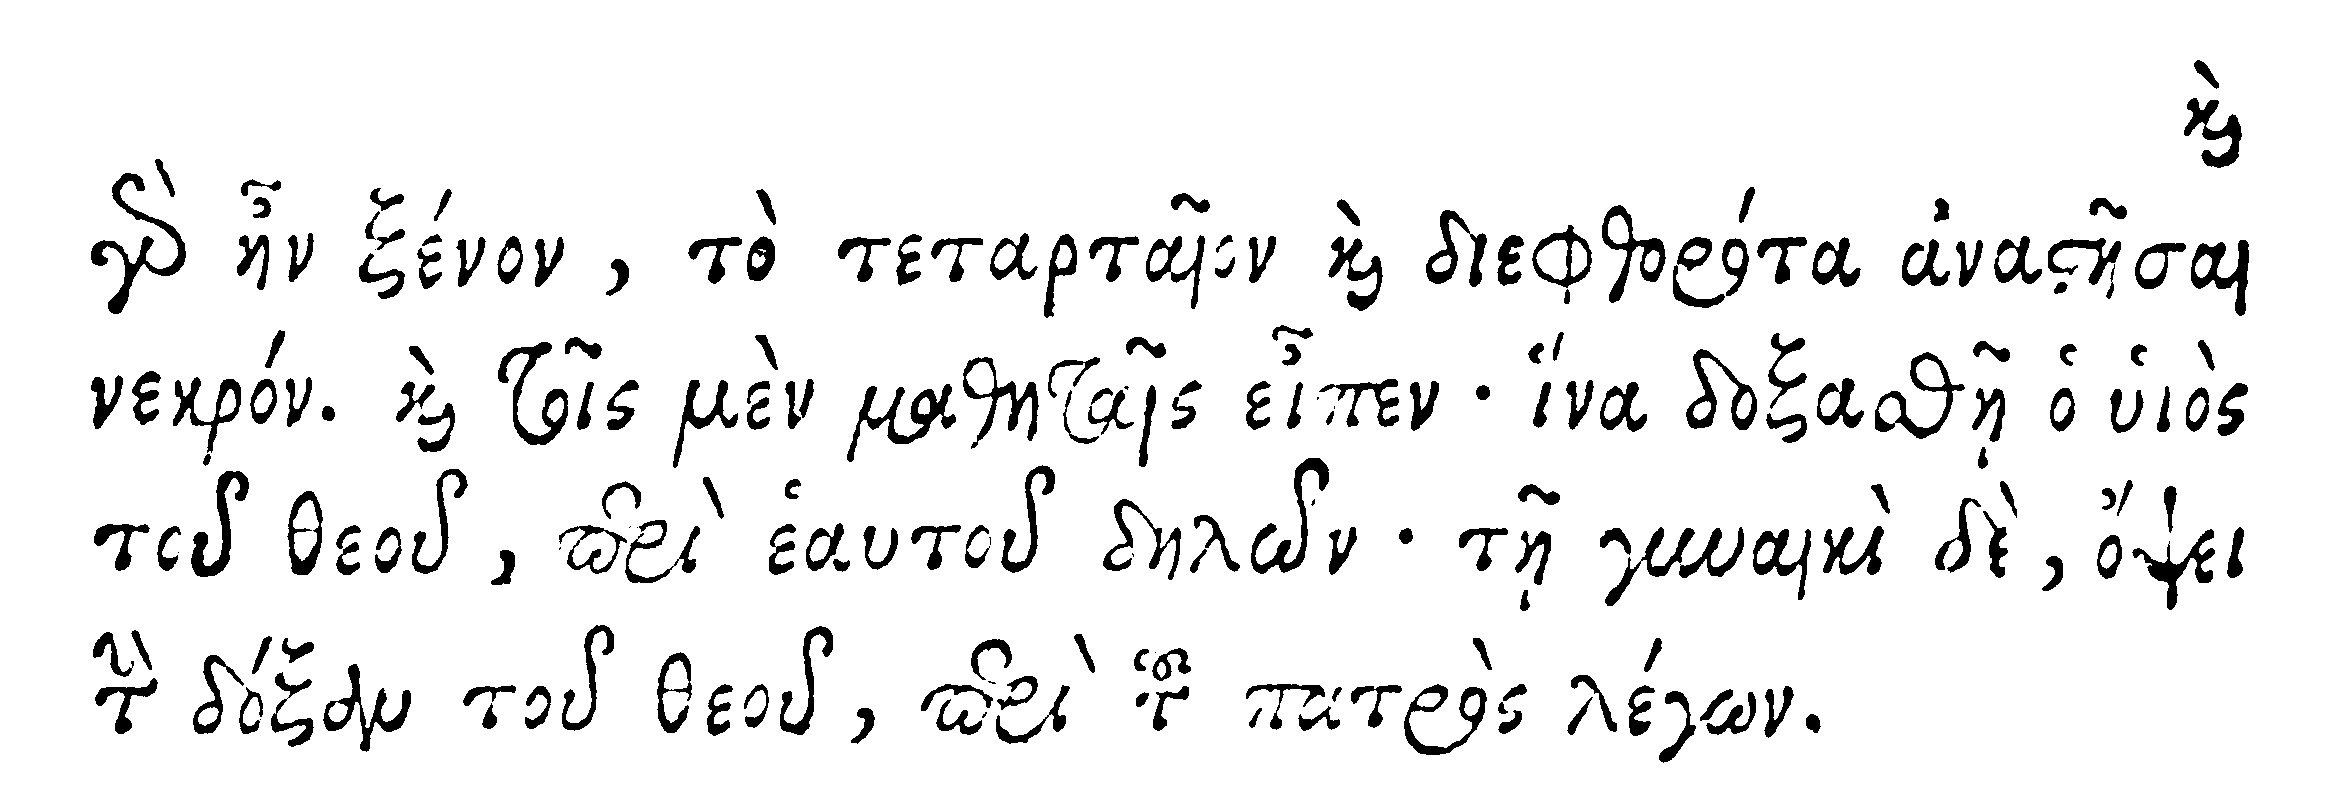 καὶ
γὰρ ἦν ξένον, τὸ τεταρταῖον καὶ διεφθορότα ἀναστῆσαι
νεκρόν. καὶ τοῖς μὲν μαθηταῖς εἶπεν· ἵνα δοξασθῇ ὁ υἱὸς
τοῦ θεοῦ, περὶ ἑαυτοῦ δηλῶν· τῇ γυναικὶ δὲ, ὄψει
τὴν δόξαν τοῦ θεοῦ, περὶ τοῦ πατρὸς λέγων.